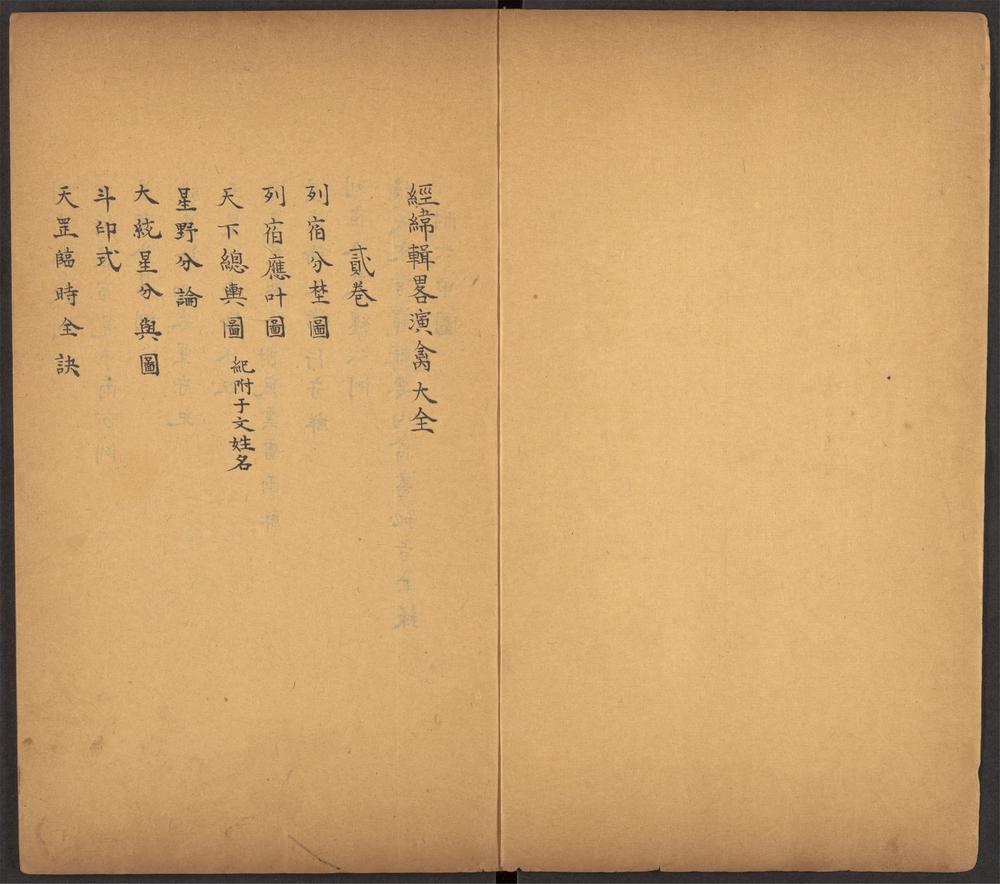 經緯輯畧演禽大全
貳卷
列宿分埜圖
列宿應叶圖
天下總輿圖 紀附于文姓名
星野分論
大統星分與圖
斗印式
天罡臨時全訣